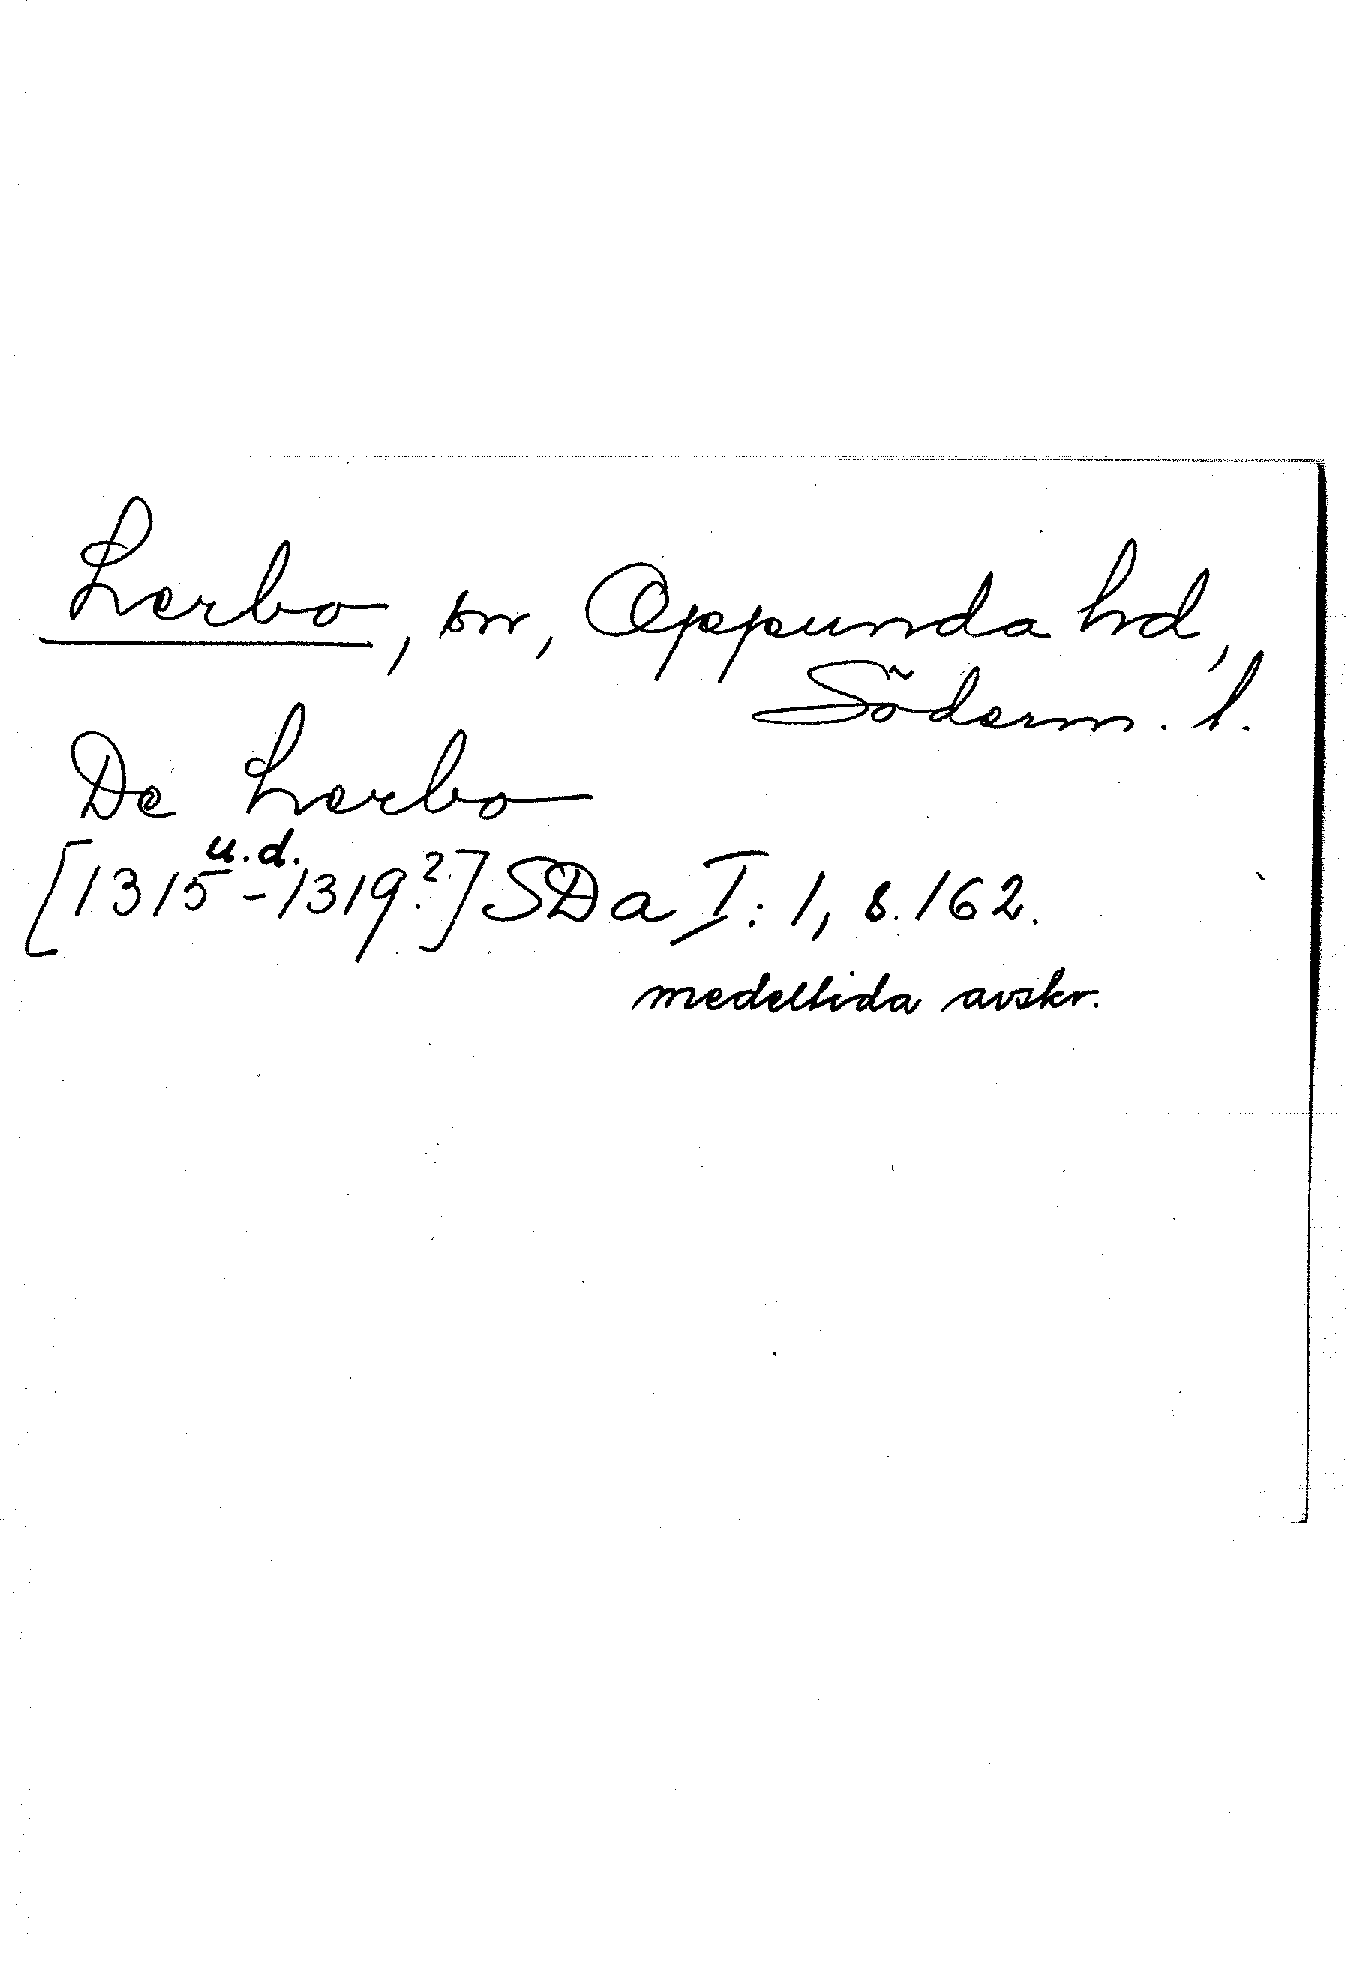 Lerbo, sn, Oppunda hd,
Söderm. l.
De Lerbo
u.d.
[1315-1319?] SDa I: 1, s. 162.
medeltida avskr.